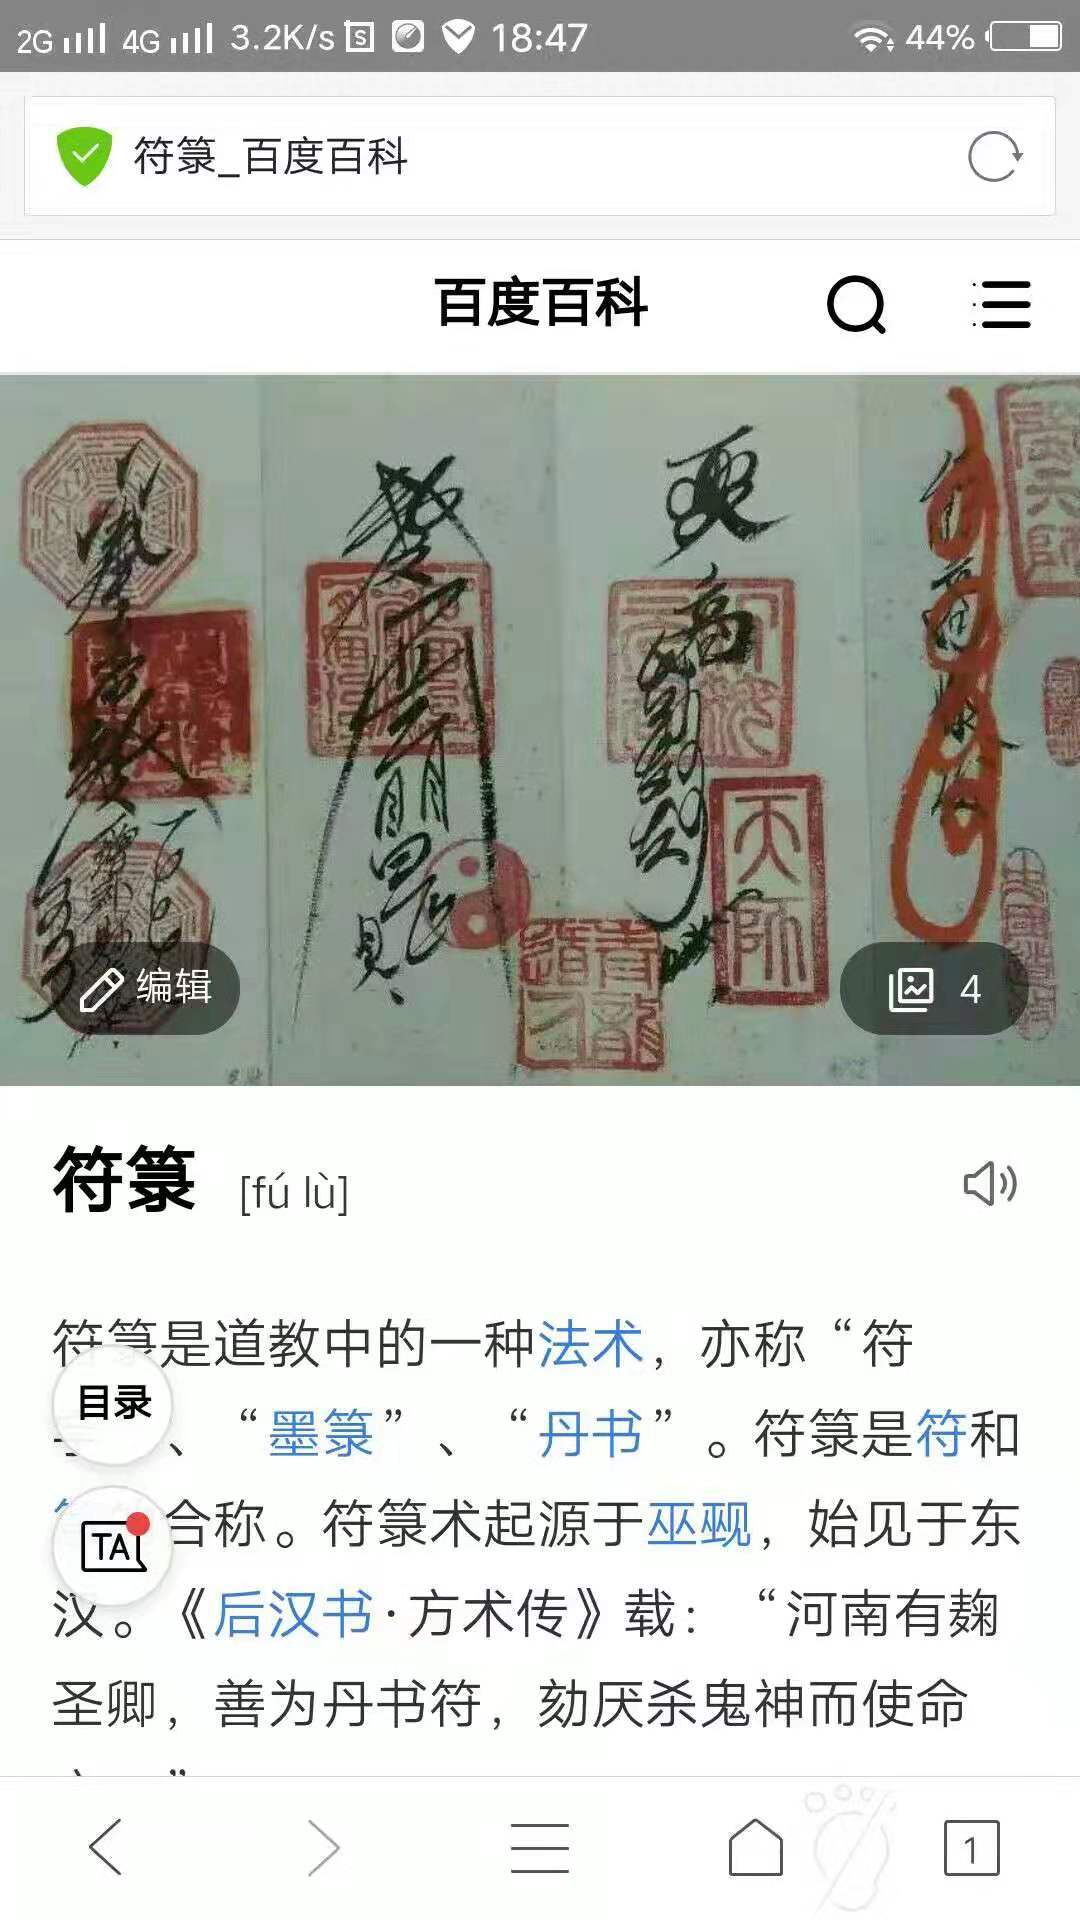 2G 4G 3.2K/s 18:47 44%
符箓_百度百科
百度百科
天师
编辑
4
符箓 [fú lù]
符箓是道教中的一种法术，亦称“符
、“墨箓”、“丹书”。符箓是符和
合称。符箓术起源于巫觋，始见于东
汉。《后汉书·方术传》载：“河南有麹
圣卿，善为丹书符，劾厌杀鬼神而使命
目录
TA
1